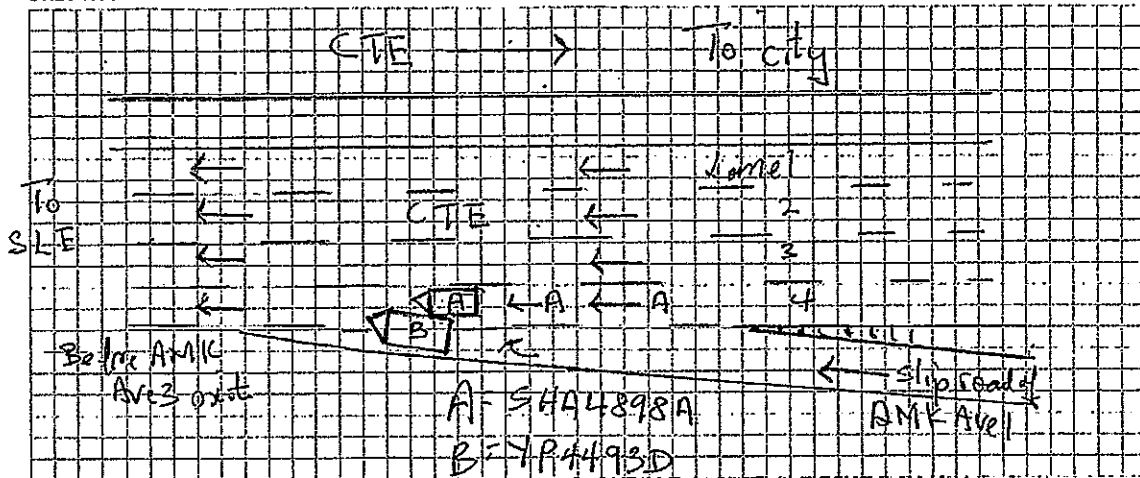 CTE → To city
Lane 1
To
SLE
CTE
2
3
4
A ← A ← A
B
Before AMK
Ave3 exit
Slip road of
AMK Ave 1
A = SHA4898A
B = YP4493D